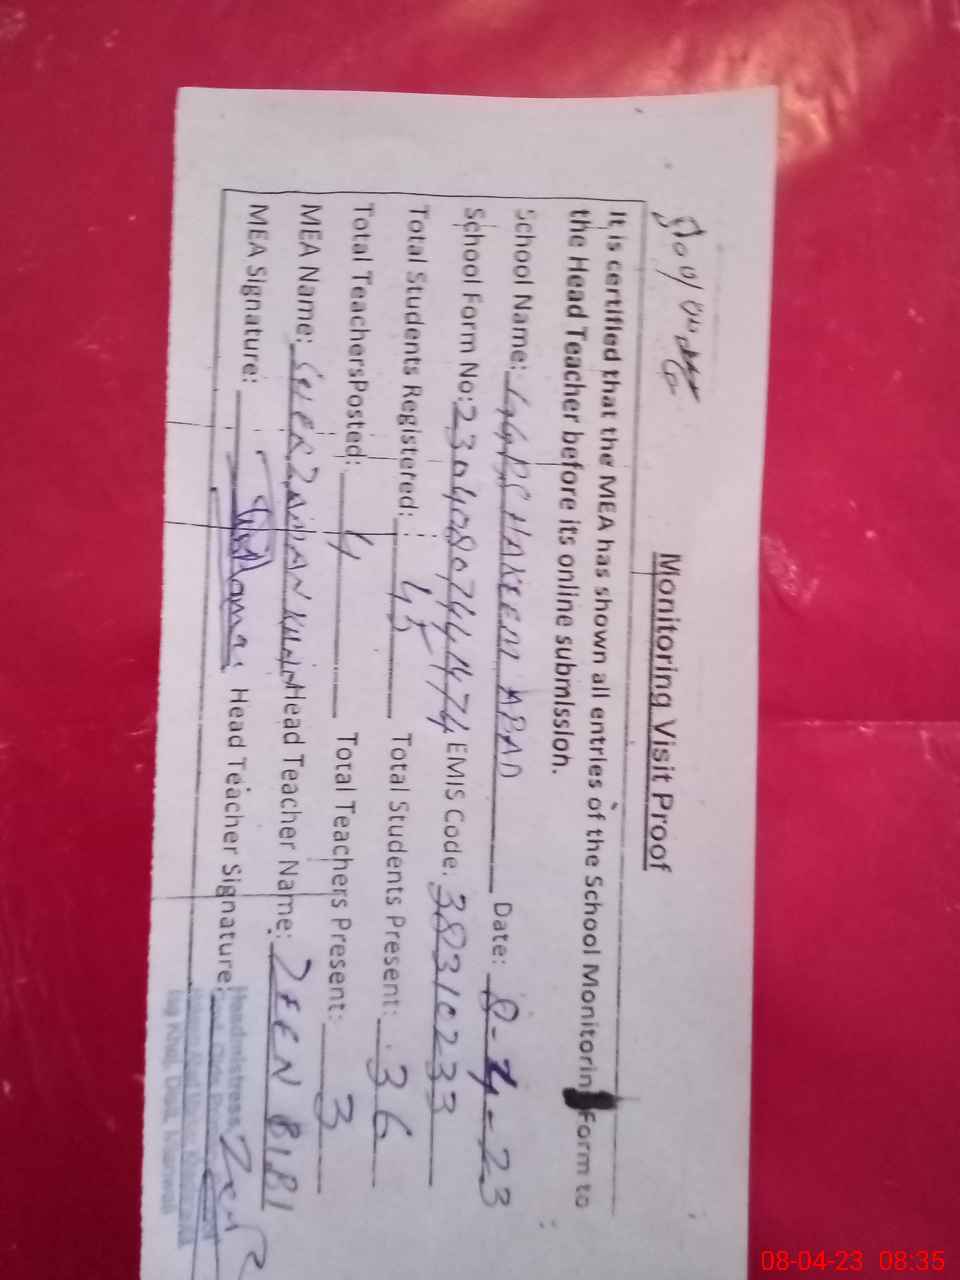 Monitoring Visit Proof
It is certified that the MEA has shown all entries of the School Monitoring Form to
the Head Teacher before its online submission.
School Name: GGPS HAKEEM ABAD Date: 8-4-23
School Form No: 230408074474 EMIS Code: 38310233
Total Students Registered: 45 Total Students Present: 36
Total TeachersPosted: 4 Total Teachers Present: 3
MEA Name: SHERZAMAN KHAN Head Teacher Name: ZEEN BIBI
MEA Signature: Head Teacher Signature:
Headmistress
08-04-23 08:35